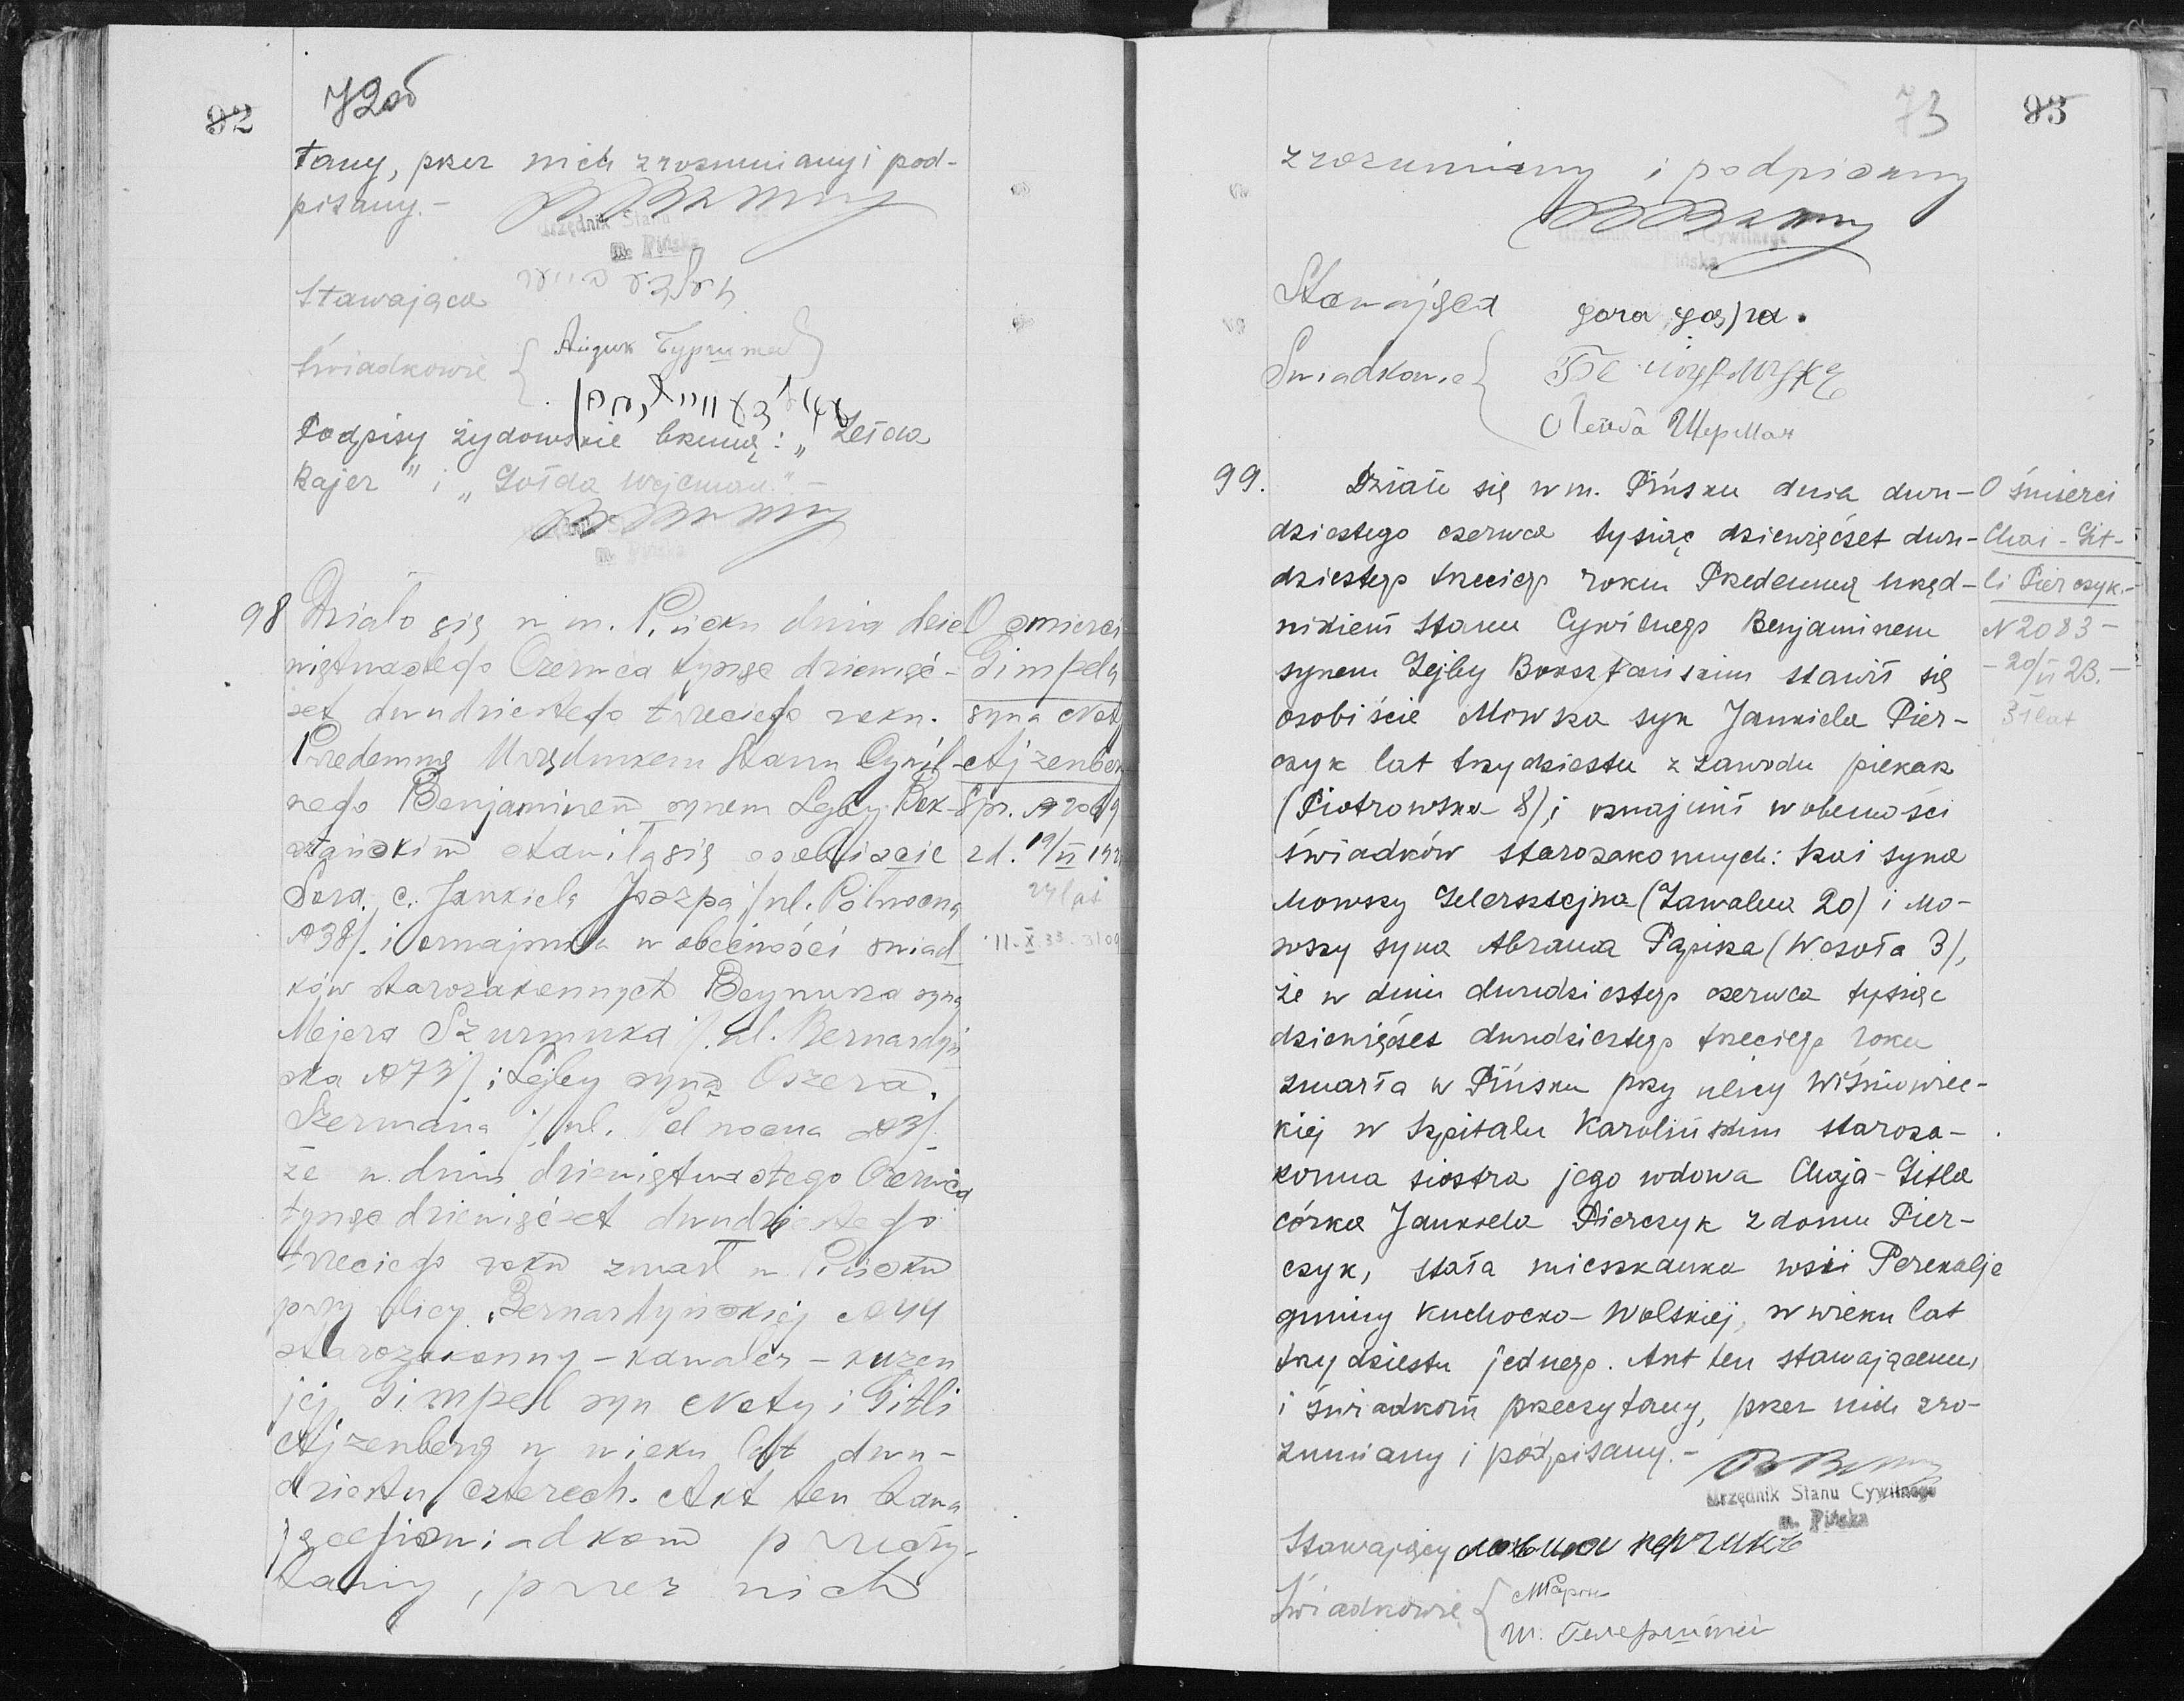 92
72об
tany, przez nich zrozumiany i pod-
pisany.-
Urzędnik Stanu
m. Pińska
Stawająca
Świadkowie
Podpisy żydowskie brzmią: „Zełda
Kajer" i „Gołda Wejcman." -
m. Pińska
98 Działo się w m. Pińsku dnia dzie-
więtnastego Czerwca tysiąc dziewięć-
set dwudziestego trzeciego roku.
Przedemną Urzędnikem Stanu Cywil-
nego Benjaminem synem Lejby Bok-
sztańskim stawiła się osobiście
Sora c. Jankiela Jozpa /ul. Północna
N38/. i oznajmiła w obecności świad-
ków starozakonnych Bejnusza syna
Mejera Szurmuka /. ul. Bernardyń
ska N73/ i Lejby syna Oszera
Szermana /. ul. Północna N3/.
że w dniu dziewiętnastego Czerwca
tysiąc dziewięćset dwudziestego
trzeciego roku zmarł w Pińsku
przy ulicy Bernardyńskiej N44
starozakonny - kawaler - kuzen
jej Gimpel syn Noty i Gitli
Ajzenberg w wieku lat dwu-
dziestu czterech. Akt ten stawa
jącej i świadkom przeczy-
tany, przez nich
O śmierci
Gimpela
syna Noty
Ajzenberg
Spr. N
zd. 19/VI
24 lat
73
93
zrozumiany i podpisany
Urzędnik Stanu Cywilnego
Pińska
Stawająca
Świadkowie
Лейба Шерман
99. Działo się w m. Pińsku dnia dwu-
dziestego czerwca tysiąc dziewięćset dwu-
dziestego trzeciego roku Przedemną Urzęd-
nikiem Stanu Cywilnego Benjaminem
synem Lejby Boksztańskim stawił się
osobiście Mowsza syn Jankiela Pier-
czyk lat trzydziestu z zawodu piekarz
(Piotrowska 8), i oznajmił w obecności
świadków starozakonnych: Szai syna
Mowszy Gelersztejna (Zawalna 20) i Mo-
wszy syna Abrama Papisza (Wesoła 3),
że w dniu dwudziestego czerwca tysiąc
dziewięćset dwudziestego trzeciego roku
zmarła w Pińsku przy ulicy Wiśniowiec-
kiej w szpitalu Karolińskim staroza-
konna siostra jego wdowa Chaja-Gitla
córka Jankiela Pierczyk z domu Pier-
czyk, stała mieszkanka wsi Perekalje
gminy Kuchocko-Wolskiej, w wieku lat
trzydziestu jednego. Akt ten stawającemu
i świadkom przeczytany, przez nich zro-
zumiany i podpisany.-
Urzędnik Stanu Cywilnego
m. Pińska
Stawający
Świadkowie
O śmierci
Chai-Git-
li Pierczyk.-
N 2083-
-20/VI 23.-
31 lat